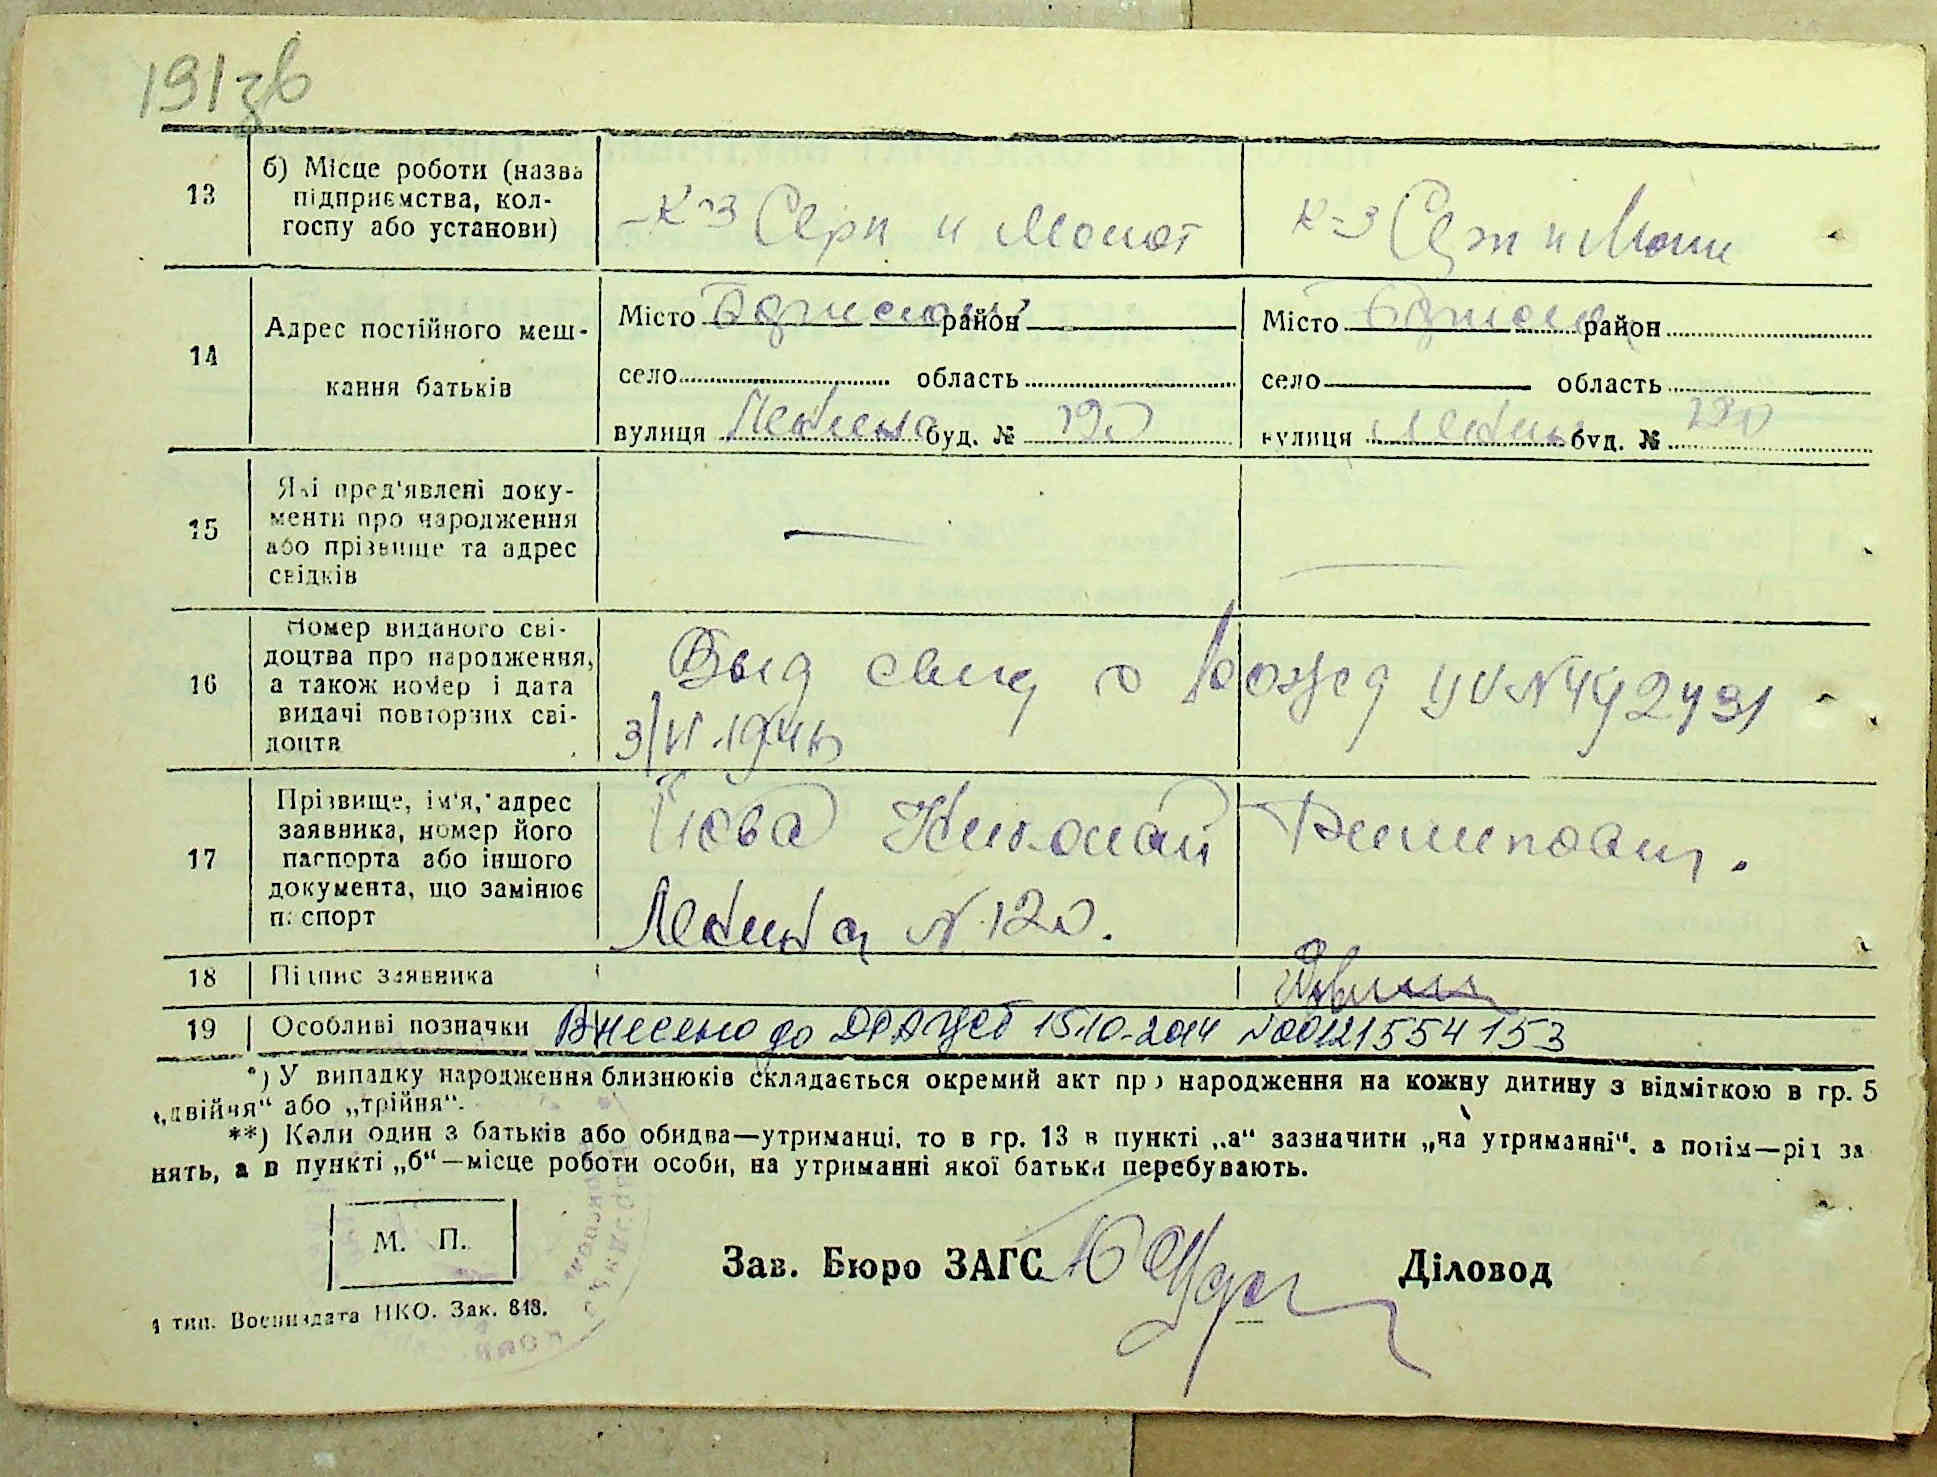 191зв
13
б) Місце роботи (назва підприємства, колгоспу або установи)
к-з Серп и Молот
к-з Серп и Мол
14
Адрес постійного мешкання батьків
Місто район
село область
вулиця Ленина буд. № 120
Місто район
село область
вулиця Ленин буд. № 120
15
Які пред'явлені документи про народження або прізвище та адрес свідків
—
—
16
Номер виданого свідоцтва про народження, а також номер і дата видачі повторних свідоцтв
Выд свид о рожд № 492431
3/VI
17
Прізвище, ім'я, адрес заявника, номер його паспорта або іншого документа, що замінює паспорт
Николай Филипович.
Ленина N 120.
18
Підпис заявника
19
Особливі позначки
Внесено до ДРАЦСГ 15.10.2014 №00121554153
*) У випадку народження близнюків складається окремий акт про народження на кожну дитину з відміткою в гр. 5
„двійня“ або „трійня“.
**) Коли один з батьків або обидва—утриманці, то в гр. 13 в пункті „а“ зазначити „на утриманні“, а потім—рід за
нять, а в пункті „б“—місце роботи особи, на утриманні якої батьки перебувають.
М. П.
Зав. Бюро ЗАГС
Діловод
1 тип. Воениздата НКО. Зак. 848.